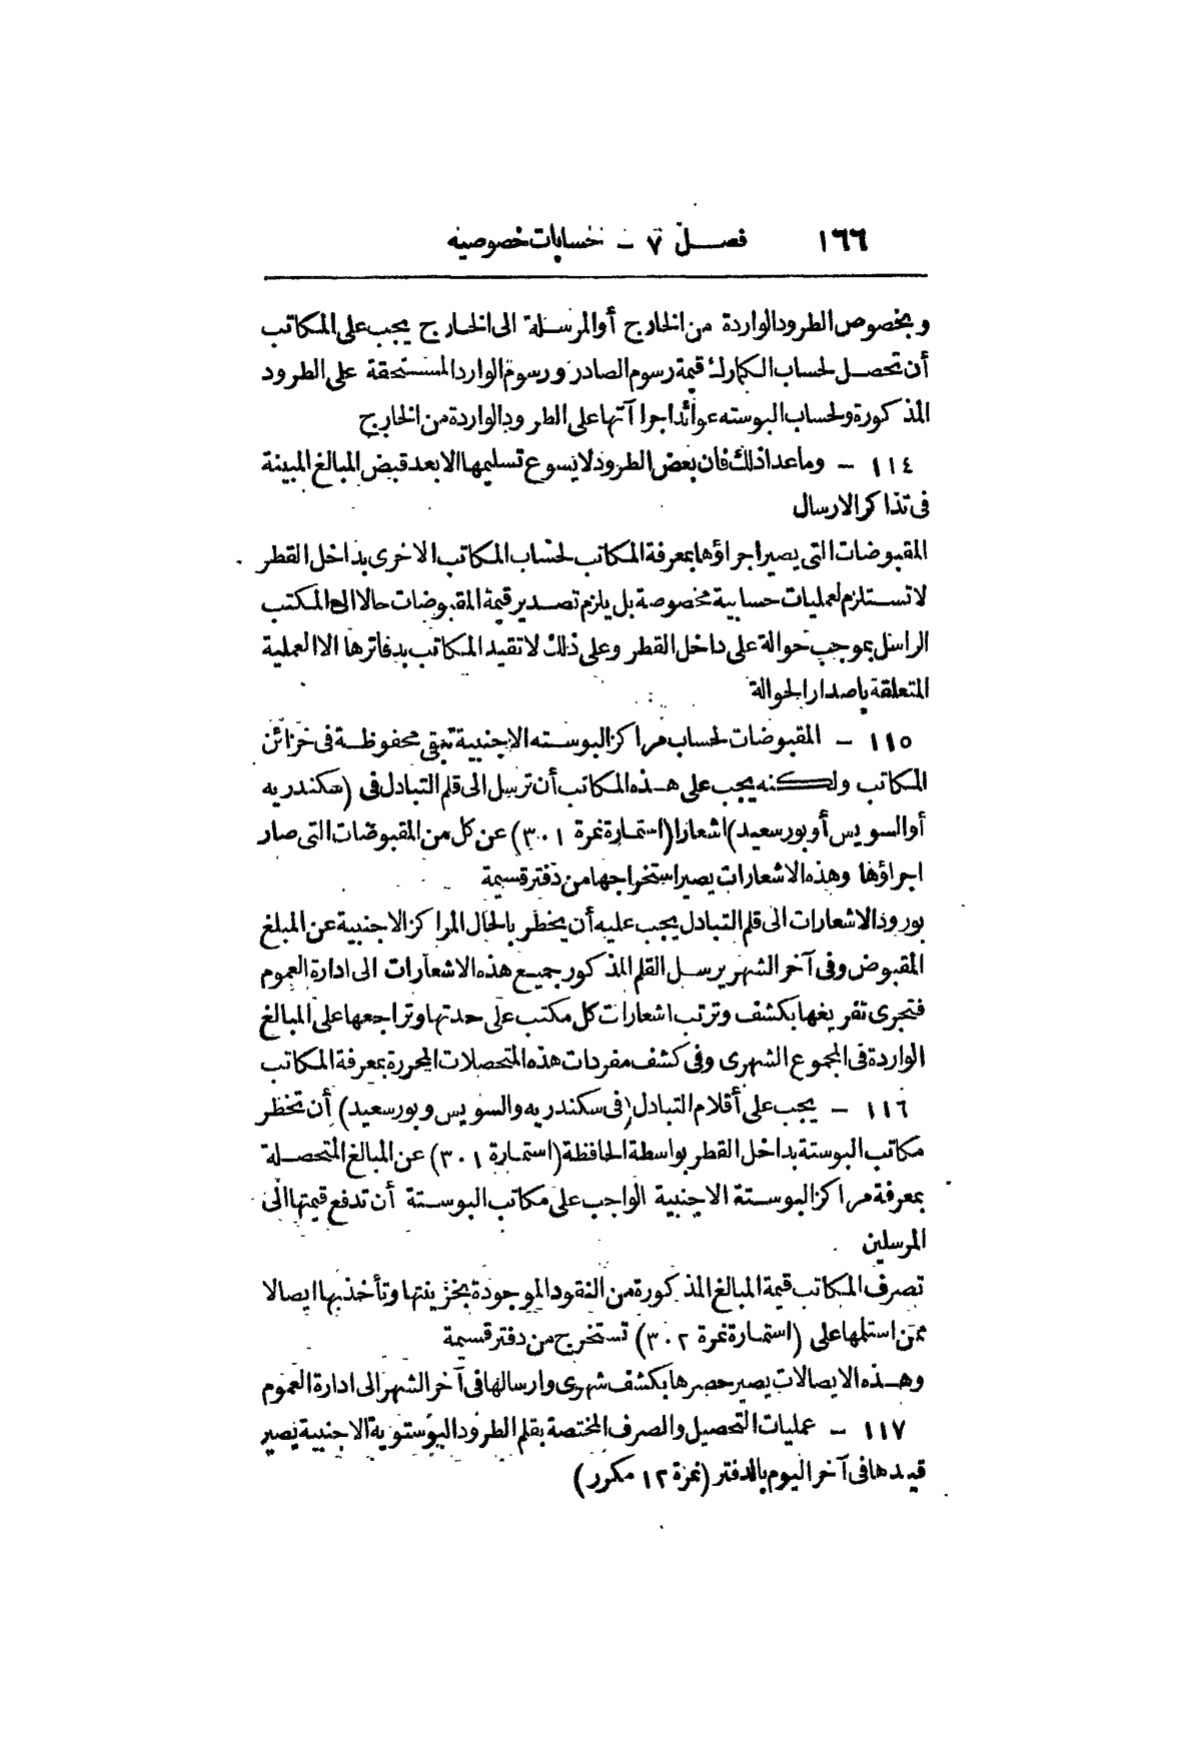 ١٦٦ فصل ٧ - حسابات خصوصيه
وبخصوص الطرود الواردة من الخارج أو المرسلة الى الخارج يجب على المكاتب
أن تحصل لحساب الكمارك قيمة رسوم الصادر ورسوم الوارد المستحقة على الطرود
المذكورة ولحساب البوسته عوائد اجراآتها على الطرود الواردة من الخارج
١١٤ - وما عدا ذلك فان بعض الطرود لا يسوغ تسليمها الا بعد قبض المبالغ المبينة
فى تذاكر الارسال
المقبوضات التى يصير اجراؤها بمعرفة المكاتب لحساب المكاتب الاخرى بداخل القطر
لا تستلزم لعمليات حسابية مخصوصة بل يلزم تصدير قيمة المقبوضات حالا الى المكتب
الراسل بموجب حوالة على داخل القطر وعلى ذلك لا تقيد المكاتب بدفاترها الا العملية
المتعلقة باصدار الحوالة
١١٥ - المقبوضات لحساب مراكز البوسته الاجنبية تبقى محفوظة فى خزائن
المكاتب ولكنه يجب على هذه المكاتب أن ترسل الى قلم التبادل فى (سكندريه
أو السويس أو بورسعيد) اشعارا (استمارة نمرة ٣٠١) عن كل من المقبوضات التى صار
اجراؤها وهذه الاشعارات يصير استخراجها من دفتر قسيمة
بورود الاشعارات الى قلم التبادل يجب عليه أن يخطر بالحال المراكز الاجنبية عن المبلغ
المقبوض وفى آخر الشهر يرسل القلم المذكور جميع هذه الاشعارات الى ادارة العموم
فتجرى تفريغها بكشف وترتب اشعارات كل مكتب على حدتها وتراجعها على المبالغ
الواردة فى المجموع الشهرى وفى كشف مفردات هذه المتحصلات المحررة بمعرفة المكاتب
١١٦ - يجب على أقلام التبادل (فى سكندريه والسويس وبورسعيد) أن تخطر
مكاتب البوستة بداخل القطر بواسطة الحافظة (استمارة ٣٠١) عن المبالغ المتحصلة
بمعرفة مراكز البوستة الاجنبية الواجب على مكاتب البوستة أن تدفع قيمتها الى
المرسلين
تصرف المكاتب قيمة المبالغ المذكورة من النقود الموجودة بخزينتها وتأخذ بها ايصالا
ممن استلمها على (استمارة نمرة ٣٠٢) تستخرج من دفتر قسيمة
وهذه الايصالات يصير حصرها بكشف شهرى وارسالها فى آخر الشهر الى ادارة العموم
١١٧ - عمليات التحصيل والصرف المختصة بقلم الطرود البوستوية الاجنبية يصير
قيدها فى آخر اليوم بالدفتر (نمرة ١٢ مكرر)